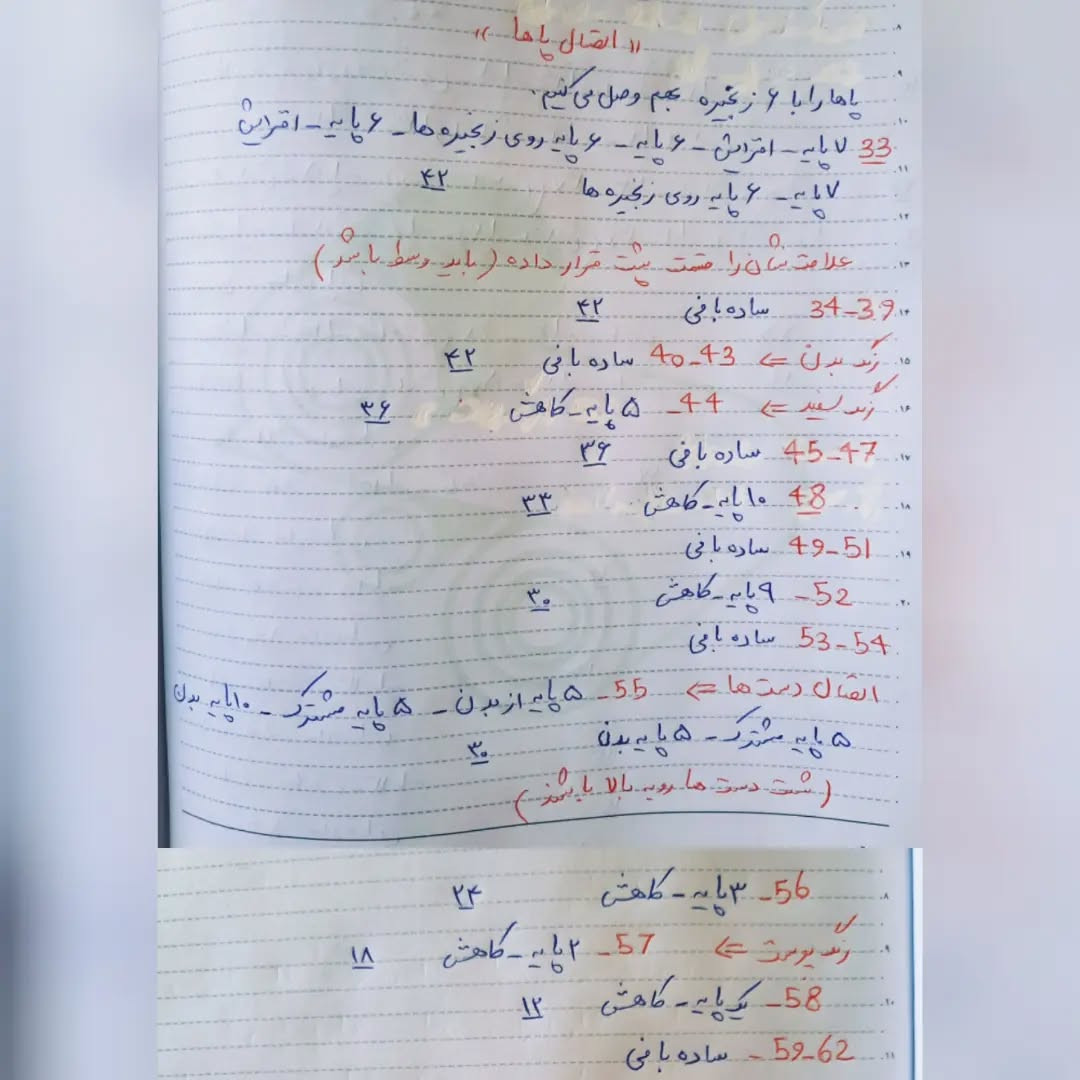 "اتصال پاها"
پاها را با ۶ زنجیره بهم وصل می کنیم.
33 ۷ پایه - افزایش - ۶ پایه - ۶ پایه روی زنجیره ها - ۶ پایه - افزایش
۷ پایه - ۶ پایه روی زنجیره ها ۴۲
علامت نشان را قسمت پشت قرار داده (باید وسط باشد)
34-39 ساده بافی ۴۲
رنگ بدن ⇐ 40-43 ساده بافی ۴۲
رنگ سفید ⇐ 44- ۵ پایه - کاهش ۳۶
45-47 ساده بافی ۳۶
48 ۱۰ پایه - کاهش ۳۳
49-51 ساده بافی
52- ۹ پایه - کاهش ۳۰
53-54 ساده بافی
اتصال دست ها ⇐ 55- ۵ پایه از بدن - ۵ پایه مشترک - ۱۰ پایه بدن
۵ پایه مشترک - ۵ پایه بدن ۳۰
(شست دست ها رو به بالا باشند)
56- ۳ پایه - کاهش ۲۴
رنگ پوست ⇐ 57- ۲ پایه - کاهش ۱۸
58- یک پایه - کاهش ۱۲
59-62 - ساده بافی